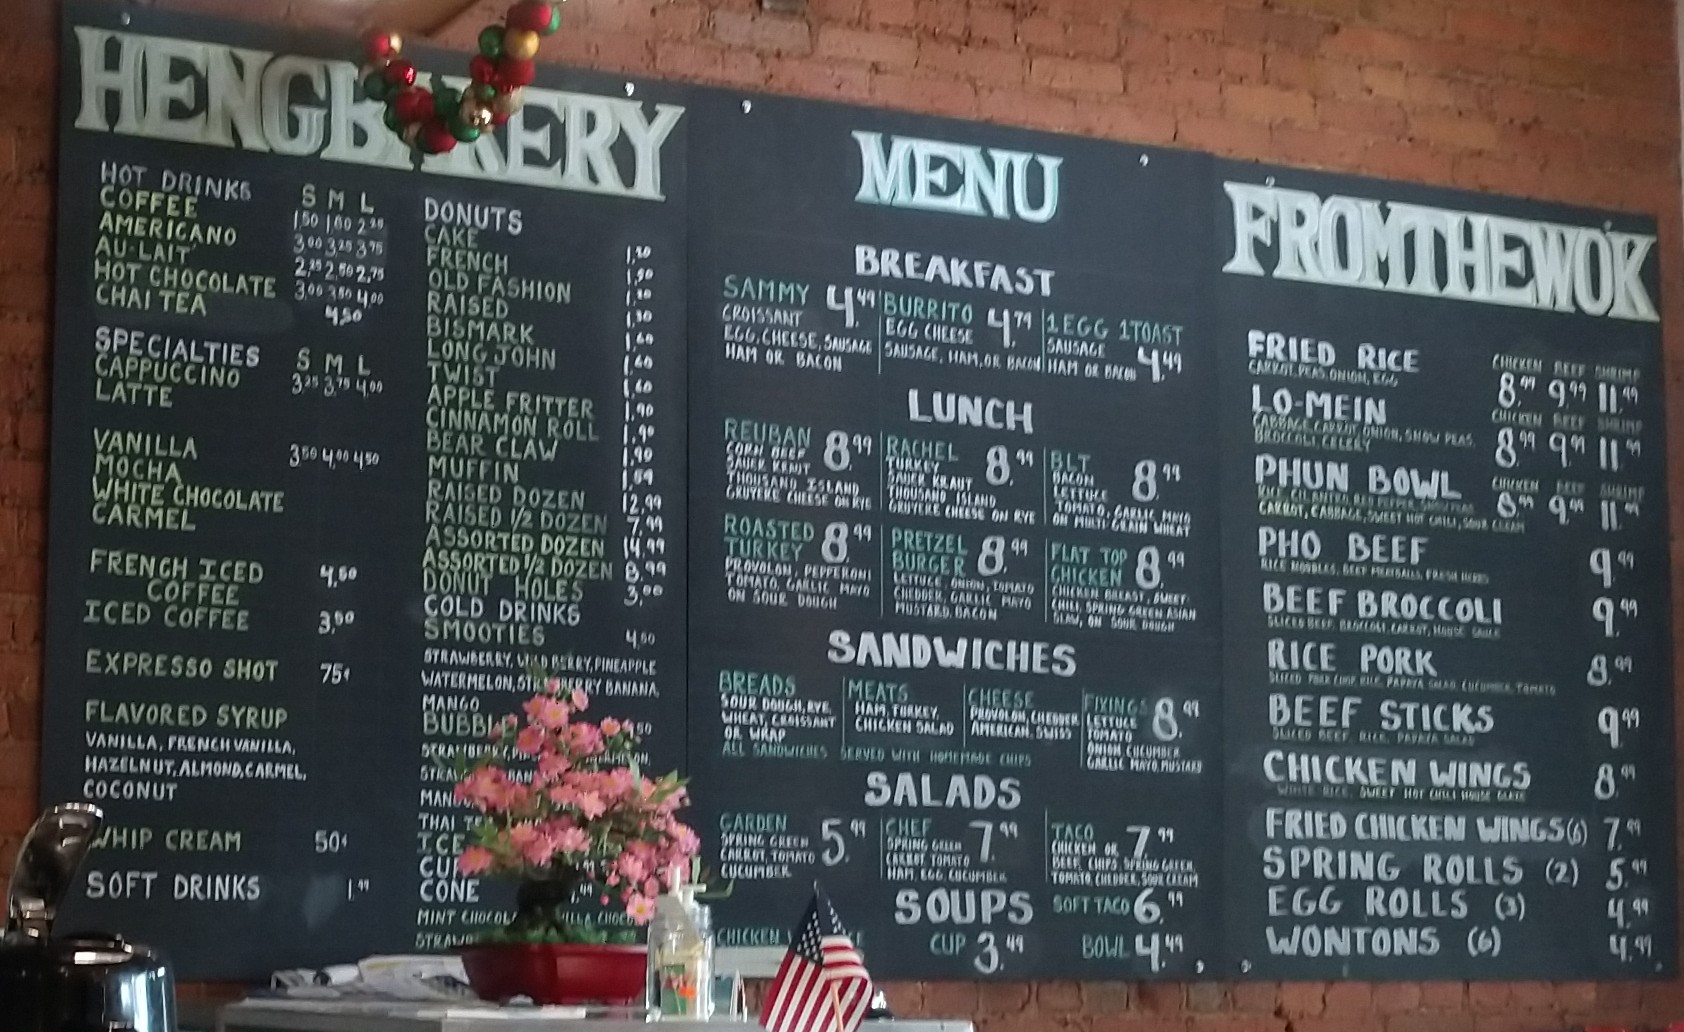 HENG BAKERY
HOT DRINKS S M L
COFFEE 1.50 1.80 2.25
AMERICANO 3.00 3.25 3.75
AU-LAIT 2.25 2.50 2.75
HOT CHOCOLATE 3.00 3.50 4.00
CHAI TEA 4.50
SPECIALTIES S M L
CAPPUCCINO 3.25 3.75 4.00
LATTE
VANILLA 3.50 4.00 4.50
MOCHA
WHITE CHOCOLATE
CARMEL
FRENCH ICED 4.50
COFFEE
ICED COFFEE 3.50
EXPRESSO SHOT 75¢
FLAVORED SYRUP
VANILLA, FRENCH VANILLA,
HAZELNUT, ALMOND, CARMEL,
COCONUT
WHIP CREAM 50¢
SOFT DRINKS 1.99
DONUTS
CAKE
FRENCH
OLD FASHION
RAISED
BISMARK
LONG JOHN
TWIST
APPLE FRITTER
CINNAMON ROLL
BEAR CLAW
MUFFIN
RAISED DOZEN 12.99
RAISED 1/2 DOZEN 7.99
ASSORTED DOZEN 14.99
ASSORTED 1/2 DOZEN 8.99
DONUT HOLES 3.00
COLD DRINKS
SMOOTIES 4.50
STRAWBERRY, WILD BERRY, PINEAPPLE
WATERMELON, STRAWBERRY BANANA,
MANGO
THAI
CONE
MENU
BREAKFAST
SAMMY 4.49
CROISSANT
EGG, CHEESE, SAUSAGE
HAM OR BACON
BURRITO 4.79
EGG CHEESE
SAUSAGE, HAM, OR BACON
1 EGG 1 TOAST
SAUSAGE 4.49
HAM OR BACON
LUNCH
REUBAN 8.99
CORN BEEF
SAUER KRAUT
THOUSAND ISLAND
GRUYERE CHEESE ON RYE
RACHEL 8.99
TURKEY
SAUER KRAUT
THOUSAND ISLAND
GRUYERE CHEESE ON RYE
BLT 8.99
BACON
LETTUCE
TOMATO, GARLIC MAYO
ON MULTI GRAIN WHEAT
ROASTED 8.99
TURKEY
PROVOLON, PEPPERONI
TOMATO, GARLIC MAYO
ON SOUR DOUGH
PRETZEL 8.99
BURGER
LETTUCE, ONION, TOMATO
CHEDDER, GARLIC MAYO
MUSTARD, BACON
FLAT TOP 8.99
CHICKEN
CHICKEN BREAST, SWEET
CHILI, SPRING GREEN ASIAN
SLAW, ON SOUR DOUGH
SANDWICHES
BREADS
SOUR DOUGH, RYE,
WHEAT, CROISSANT
OR WRAP
MEATS
HAM, TURKEY,
CHICKEN SALAD
CHEESE
PROVOLON, CHEDDER
AMERICAN, SWISS
FIXINGS 8.99
LETTUCE
TOMATO
ONION CUCUMBER
GARLIC MAYO, MUSTARD
ALL SANDWICHES SERVED WITH HOMEMADE CHIPS
SALADS
GARDEN 5.99
SPRING GREEN
CARROT, TOMATO
CUCUMBER
CHEF 7.99
SPRING GREEN
CARROT, TOMATO
HAM, EGG CUCUMBER
TACO 7.99
CHICKEN OR
BEEF, CHIPS, SPRING GREEN,
TOMATO, CHEDDER, SOUR CREAM
SOUPS
SOFT TACO 6.99
CHICKEN
CUP 3.49
BOWL 4.49
FROM THE WOK
FRIED RICE CHICKEN BEEF SHRIMP
CARROT, PEAS, ONION, EGG 8.99 9.99 11.99
LO-MEIN CHICKEN BEEF SHRIMP
CABBAGE, CARROT, ONION, SNOW PEAS, 8.99 9.99 11.99
BROCCOLI, CELERY
PHUN BOWL CHICKEN BEEF SHRIMP
8.99 9.99 11.99
CARROT, CABBAGE, SWEET HOT CHILI, SOUR CREAM
PHO BEEF 9.99
RICE NOODLES, BEEF MEATBALLS, FRESH HERBS
BEEF BROCCOLI 9.99
SLICED BEEF, BROCCOLI, CARROT, HOUSE SAUCE
RICE PORK 8.99
SLICED PORK CHOP, RICE, PAPAYA SALAD, CUCUMBER, TOMATO
BEEF STICKS 9.99
SLICED BEEF, RICE, PAPAYA SALAD
CHICKEN WINGS 8.99
WHITE RICE, SWEET HOT CHILI HOUSE GLAZE
FRIED CHICKEN WINGS (6) 7.99
SPRING ROLLS (2) 5.99
EGG ROLLS (3) 4.99
WONTONS (6) 4.99